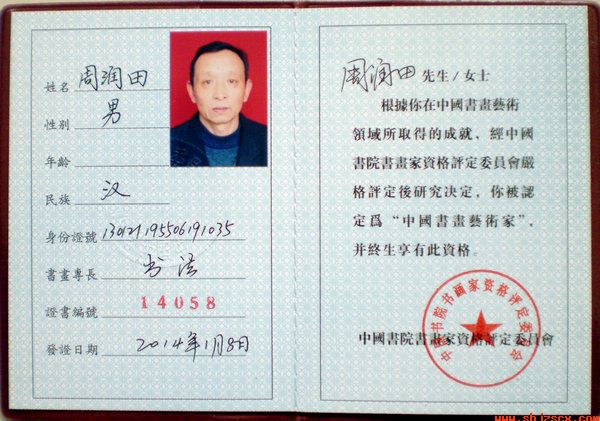 姓名 周润田
性别 男
年龄
民族 汉
身份證號 130121195506191035
書畫專長 书法
證書编號 14058
發證日期 2014年1月8日
周润田 先生/女士
根據你在中國書畫藝術
領域所取得的成就，經中國
書院書畫家資格評定委員會嚴
格評定後研究决定，你被認
定爲“中國書畫藝術家”，
并終生享有此資格。
中國書院書畫家資格評定委員會
中國书院书畫家资格评定委员会
www.shjzscx.com